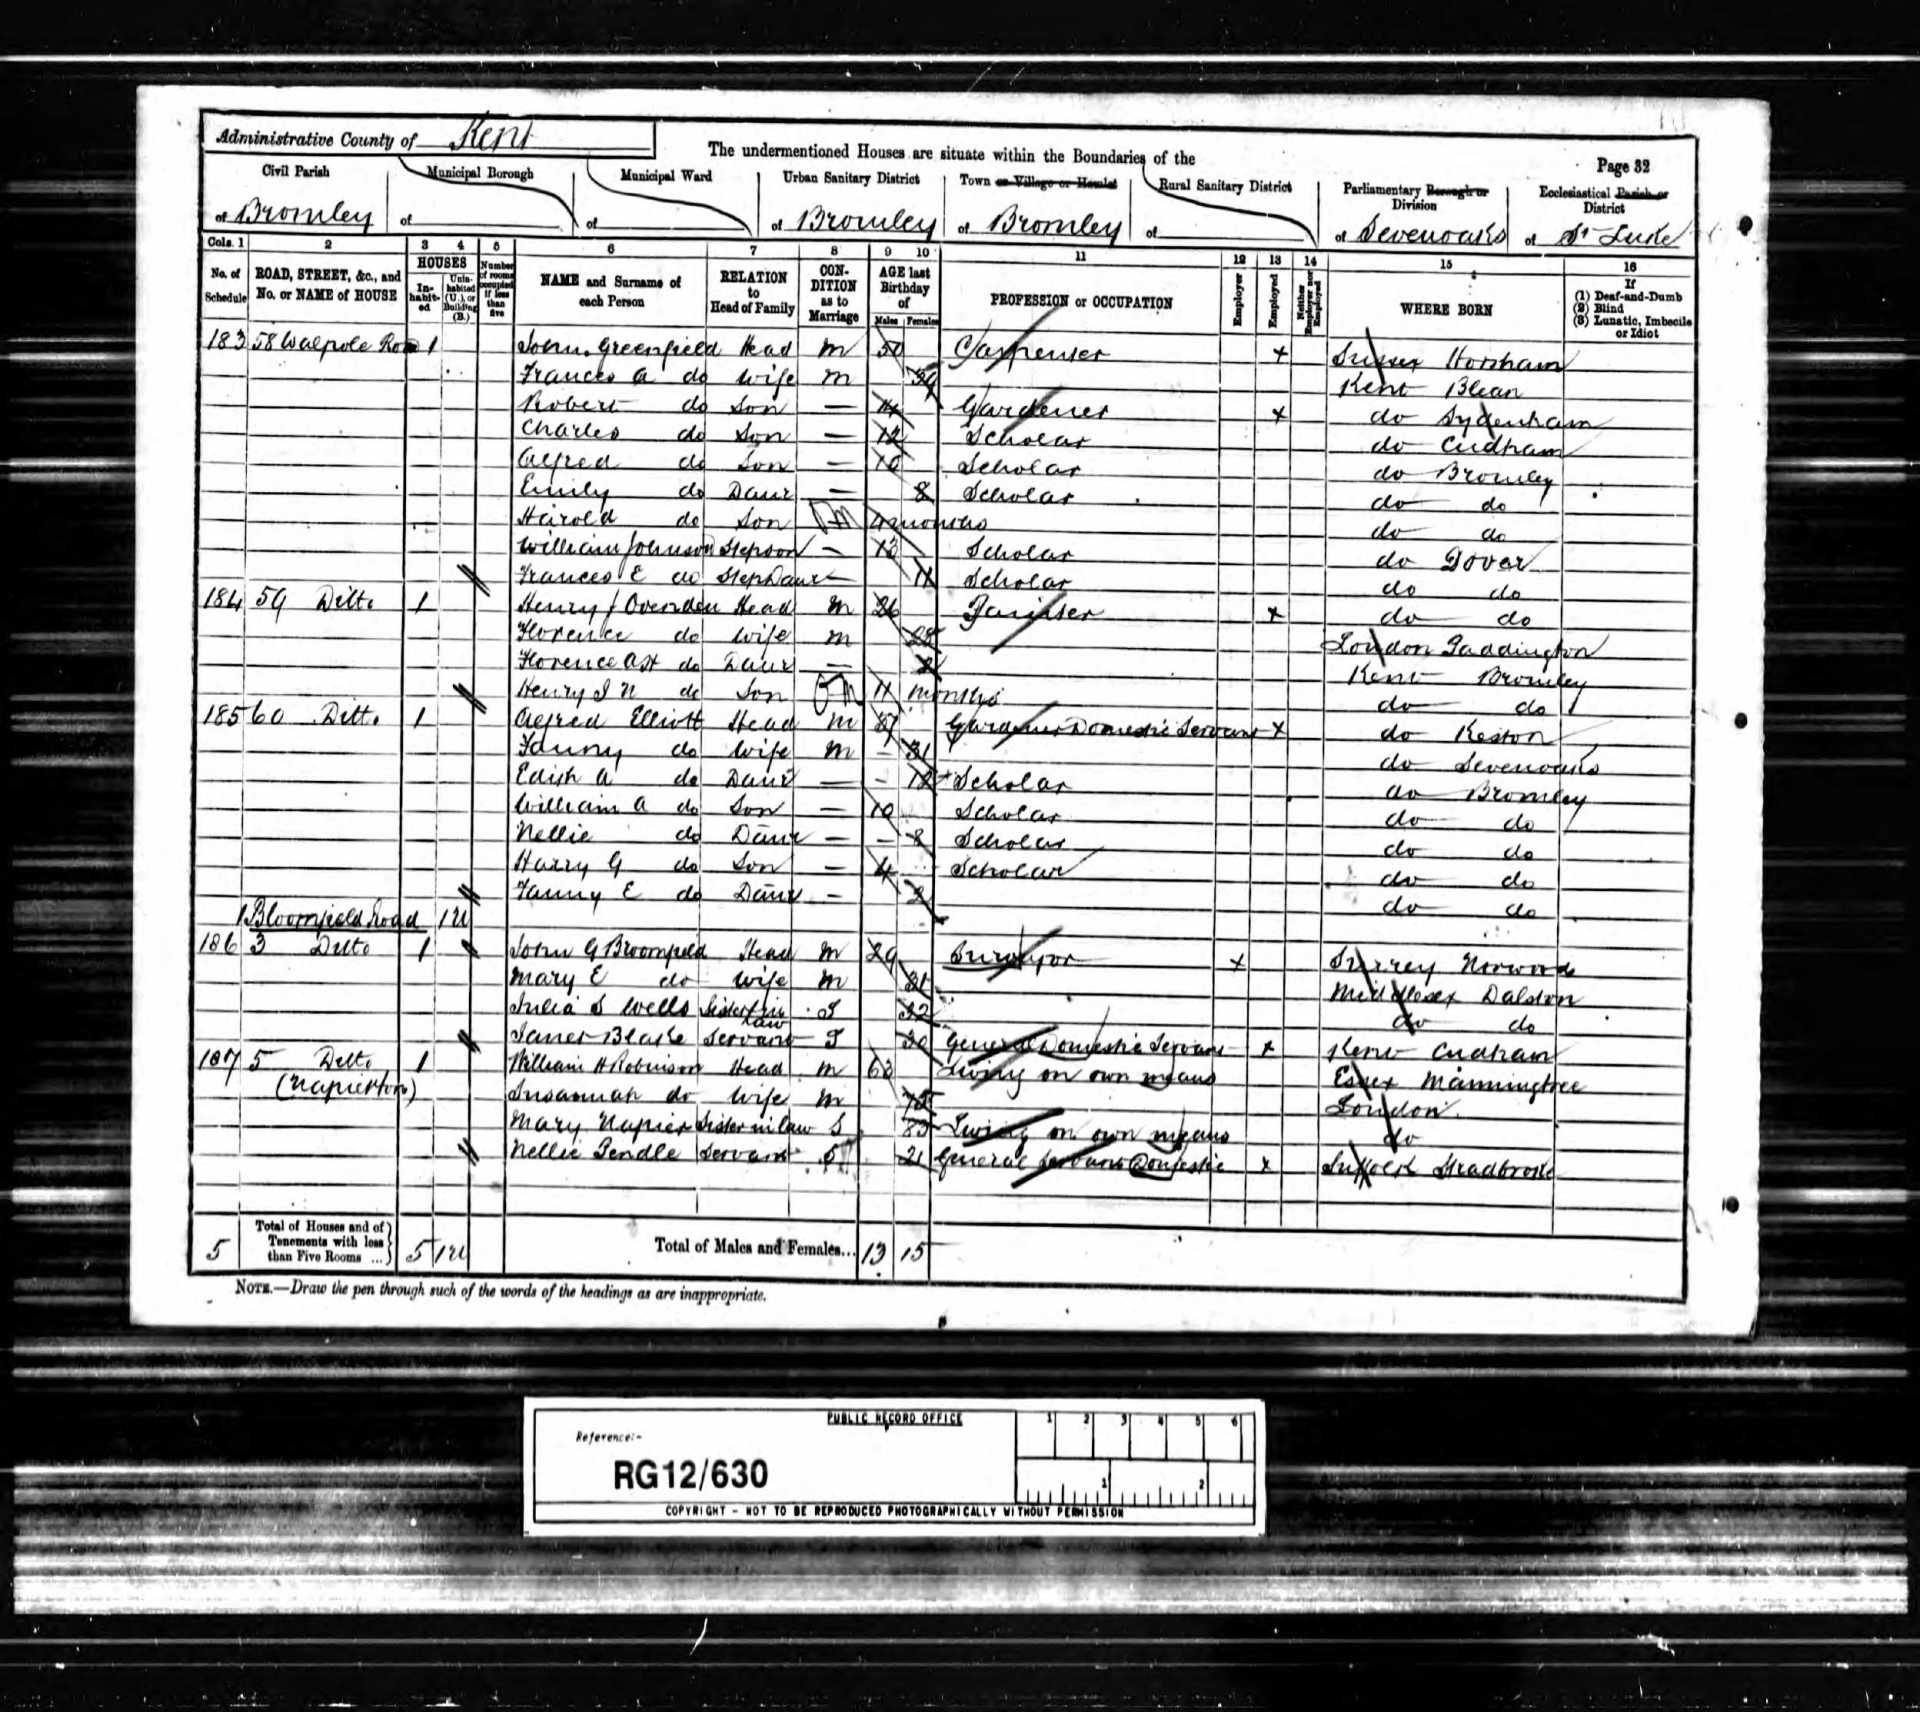 Administrative County of Kent
The undermentioned Houses are situate within the Boundaries of the
Page 32
Civil Parish of Bromley
Municipal Borough of
Municipal Ward of
Urban Sanitary District of Bromley
Town or Village or Hamlet of Bromley
Rural Sanitary District of
Parliamentary Borough or Division of Sevenoaks
Ecclesiastical Parish or District of St Luke
Cols. 1 2 3 4 5 6 7 8 9 10 11 12 13 14 15 16
No. of Schedule
ROAD, STREET, &c., and No. or NAME of HOUSE
HOUSES
In-habit-ed
Unin-habited (U.), or Building (B.)
Number of rooms occupied if less than five
NAME and Surname of each Person
RELATION to Head of Family
CON-DITION as to Marriage
AGE last Birthday of
Males Females
PROFESSION or OCCUPATION
Employer
Employed
Neither Employer nor Employed
WHERE BORN
If (1) Deaf-and-Dumb (2) Blind (3) Lunatic, Imbecile or Idiot
183 58 Walpole Road 1 John Greenfield Head M 50 Carpenter x Sussex Horsham
Frances A do Wife M 39 Kent Blean
Robert do Son — 14 Gardener x do Sydenham
Charles do Son — 12 Scholar do Cudham
Alfred do Son — 10 Scholar do Bromley
Emily do Daur — 8 Scholar do do
Harold do Son months do do
William Johnson Stepson — 13 Scholar do Dover
Frances E do StepDaur — 11 Scholar do do
184 59 Ditto 1 Henry J Overden Head M 26 Painter x do do
Florence do Wife M 25 London Paddington
Florence A H do Daur — 2 Kent Bromley
Henry J N do Son 11 months do do
185 60 Ditto 1 Alfred Elliott Head M 37 Gardener Domestic Servant x do Keston
Fanny do Wife M - 31 do Sevenoaks
Edith A do Daur — - 12 Scholar do Bromley
William A do Son — 10 Scholar do do
Nellie do Daur — - 8 Scholar do do
Harry G do Son — 4 Scholar do do
Fanny E do Daur — 2 do do
1 Bloomfield Road 1U
186 3 Ditto 1 John G Broomfield Head M 29 Surveyor x Surrey Norwood
Mary E do Wife M 31 Middlesex Dalston
Julia S Wells Sister in Law S 32 do do
Janet Blake Servant S 30 General Domestic Servant x Kent Cudham
187 5 Ditto 1 William H Robinson Head M 63 Living on own means Essex Manningtree
(Napierton) Susannah do Wife M 75 London
Mary Napier Sister in law S 83 Living on own means do
Nellie Pendle Servant S 21 General Servant Domestic x Suffolk Stradbroke
5 Total of Houses and of Tenements with less than Five Rooms ... 5 1U Total of Males and Females... 13 15
NOTE.—Draw the pen through such of the words of the headings as are inappropriate.
PUBLIC RECORD OFFICE
1 2 3 4 5 6
Reference:-
RG12/630
1 2
COPYRIGHT - NOT TO BE REPRODUCED PHOTOGRAPHICALLY WITHOUT PERMISSION